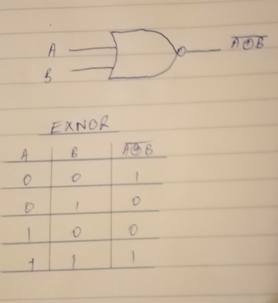 A
B
A̅⊕̅B̅
EXNOR
A B A̅⊕̅B̅
0 0 1
0 1 0
1 0 0
1 1 1